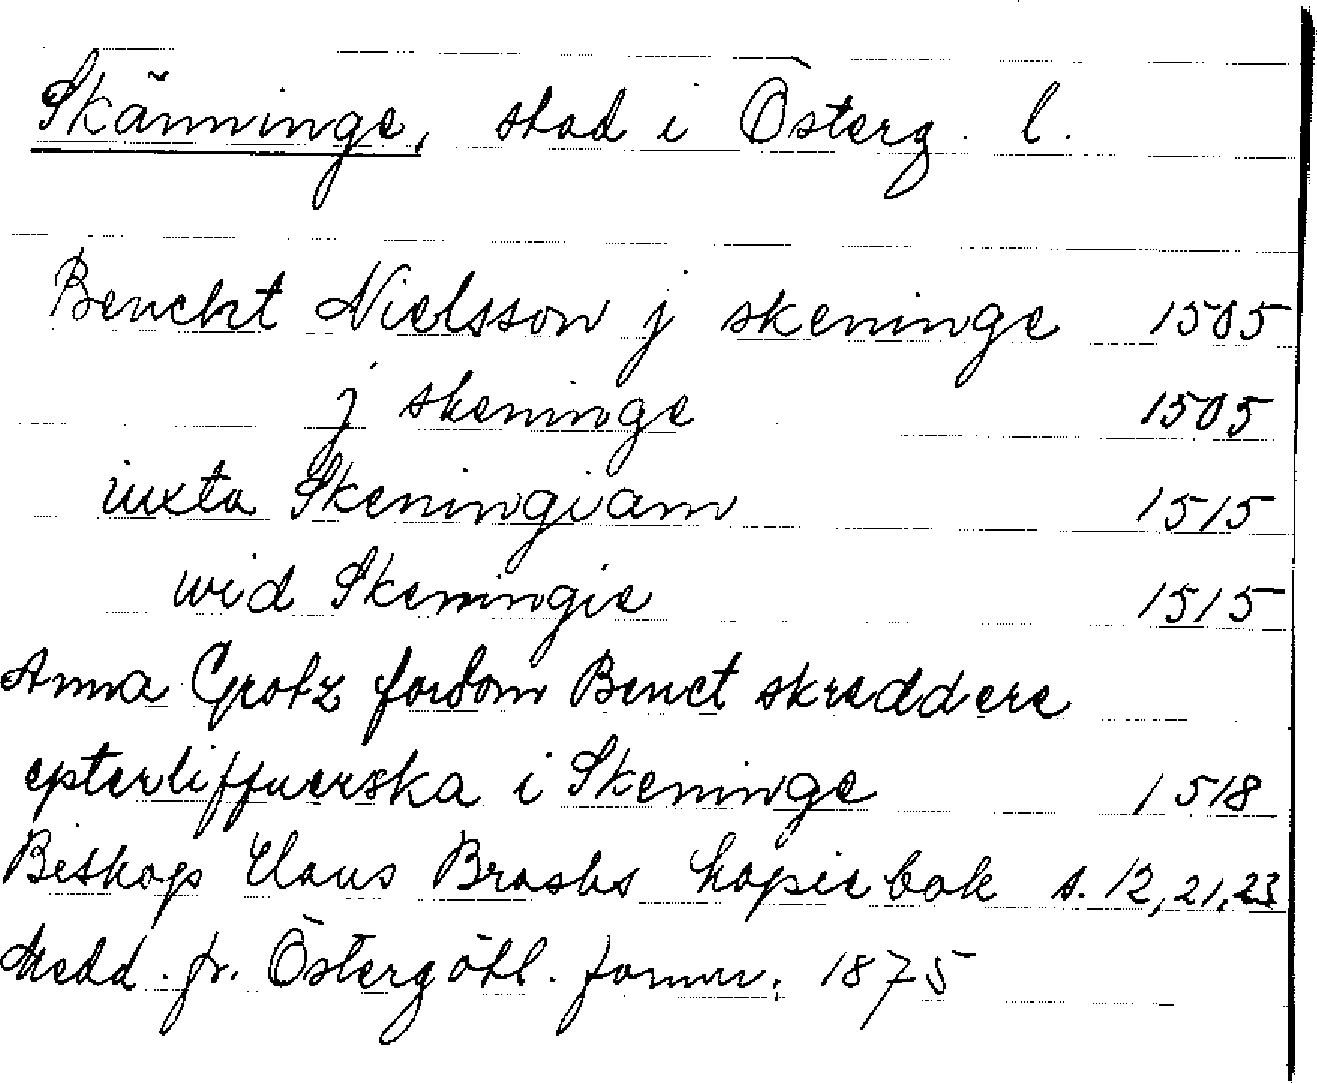 Skänninge, stad i Österg. l.
Benckt Nielsson j skeninge 1505
j skeninge 1505
iuxta Skeningiam 1515
wid Skeningie 1515
Anna Grotz fordom Benct skreddere
epterliffuerska i Skeninge 1518
Biskop Claus Brasks kopiebok s. 12, 21, 23
Medd. fr. Östergötl. fornm. 1875